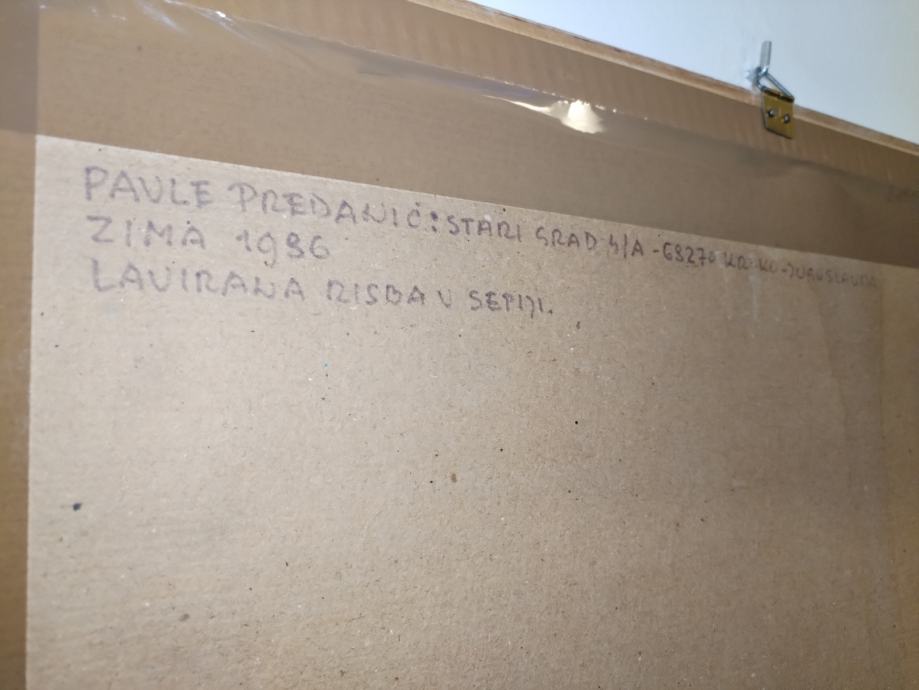 PAVLE PREDANIČ: STARI GRAD 4/A - 68270 KRŠKO - JUGOSLAVIJA
ZIMA 1986
LAVIRANA RISBA V SEPIJI.